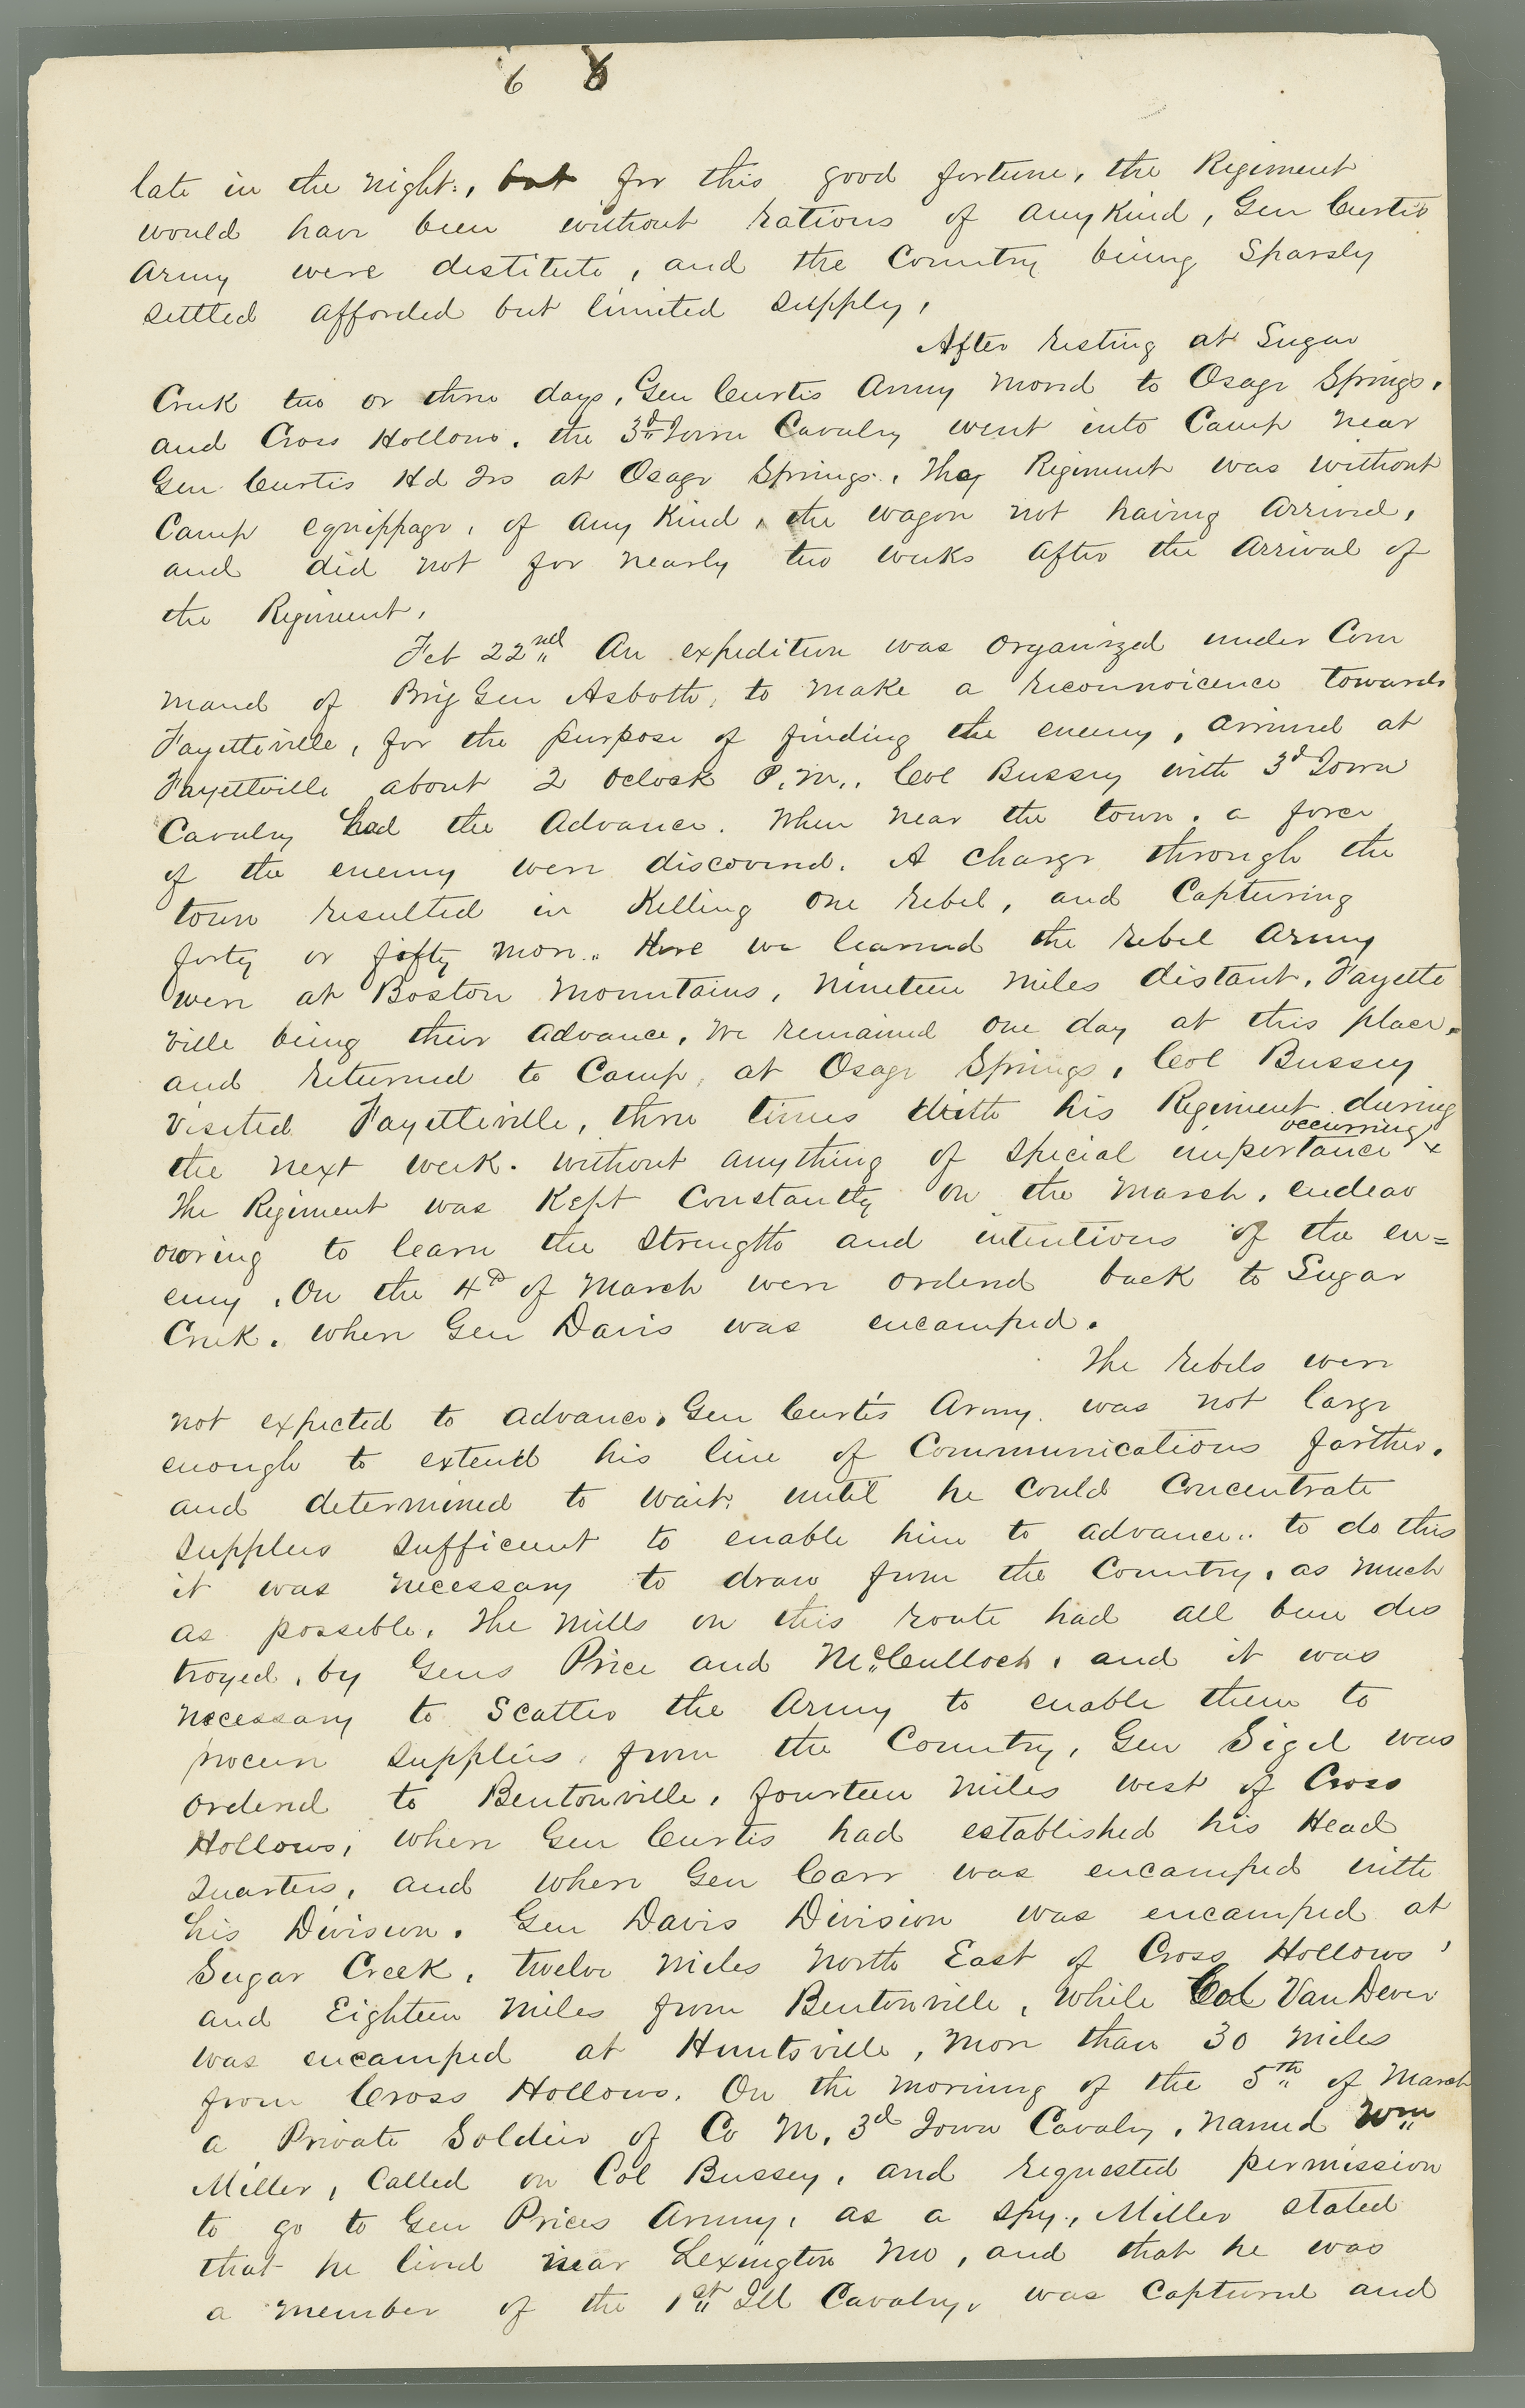 6 8
late in the night., but for this good fortune, the Regiment
would have been without rations of any Kind, Gen Curtis
Army were destitute, and the Country being Sparsly
settled afforded but limited supply,
After resting at Sugar
Creek two or three days, Gen Curtis Army moved to Osage Springs,
and Cross Hollows. the 3d Iowa Cavalry went into Camp near
Gen Curtis Hd Qrs at Osage Springs. The Regiment was without
Camp equippage, of any Kind, the wagon not having arrived,
and did not for nearly two weeks after the arrival of
the Regiment,
Feb 22nd An expedition was organized under Com
mand of Brig Gen Asboth, to make a reconnoicence towards
Fayetteville, for the purpose of finding the enemy, arrived at
Fayettville about 2 Oclock P.M., Col Bussey with 3d Iowa
Cavalry had the Advance. When near the town, a force
of the enemy were discovered. A charge through the
town resulted in Killing one rebel, and Capturing
forty or fifty more.. Here we learned the rebel Army
were at Boston Mountains, nineteen miles distant, Fayette
ville being their advance, We remained one day at this place,
and returned to Camp, at Osage Springs, Col Bussey
visited Fayetteville, three times with his Regiment during
the next week. without anything of special importance occurring
The Regiment was Kept Constantly on the March, endeav
ouring to learn the strength and intentions of the en=
emy. On the 4th of March were ordered back to Sugar
Creek. where Gen Davis was encamped.
The rebels were
not expected to advance, Gen Curtis Army was not large
enough to extend his line of Communications farther.
and determined to wait, until he could Concentrate
supplies sufficient to enable him to advance.. to do this
it was necessary to draw from the Country, as much
as possible, The Mills on this route had all been des
troyed, by Gens Price and McCulloch, and it was
necessary to Scatter the Army to enable them to
procure supplies, from the Country, Gen Sigel was
ordered to Bentonville, fourteen miles west of Cross
Hollows, where Gen Curtis had established his Head
Quarters, and where Gen Carr was encamped with
his Division. Gen Davis Division was encamped at
Sugar Creek, twelve miles North East of Cross Hollows,
and Eighteen miles from Bentonville, While Col Van Dever
was encamped at Huntsville, more than 30 miles
from Cross Hollows. On the morning of the 5th of March
a Private Soldier of Co M, 3d Iowa Cavaly, named Wm
Miller, Called on Col Bussey, and requested permission
to go to Gen Prices Army, as a spy., Miller stated
that he lived near Lexington Mo, and that he was
a member of the 1st Ill Cavalry, was Captured and